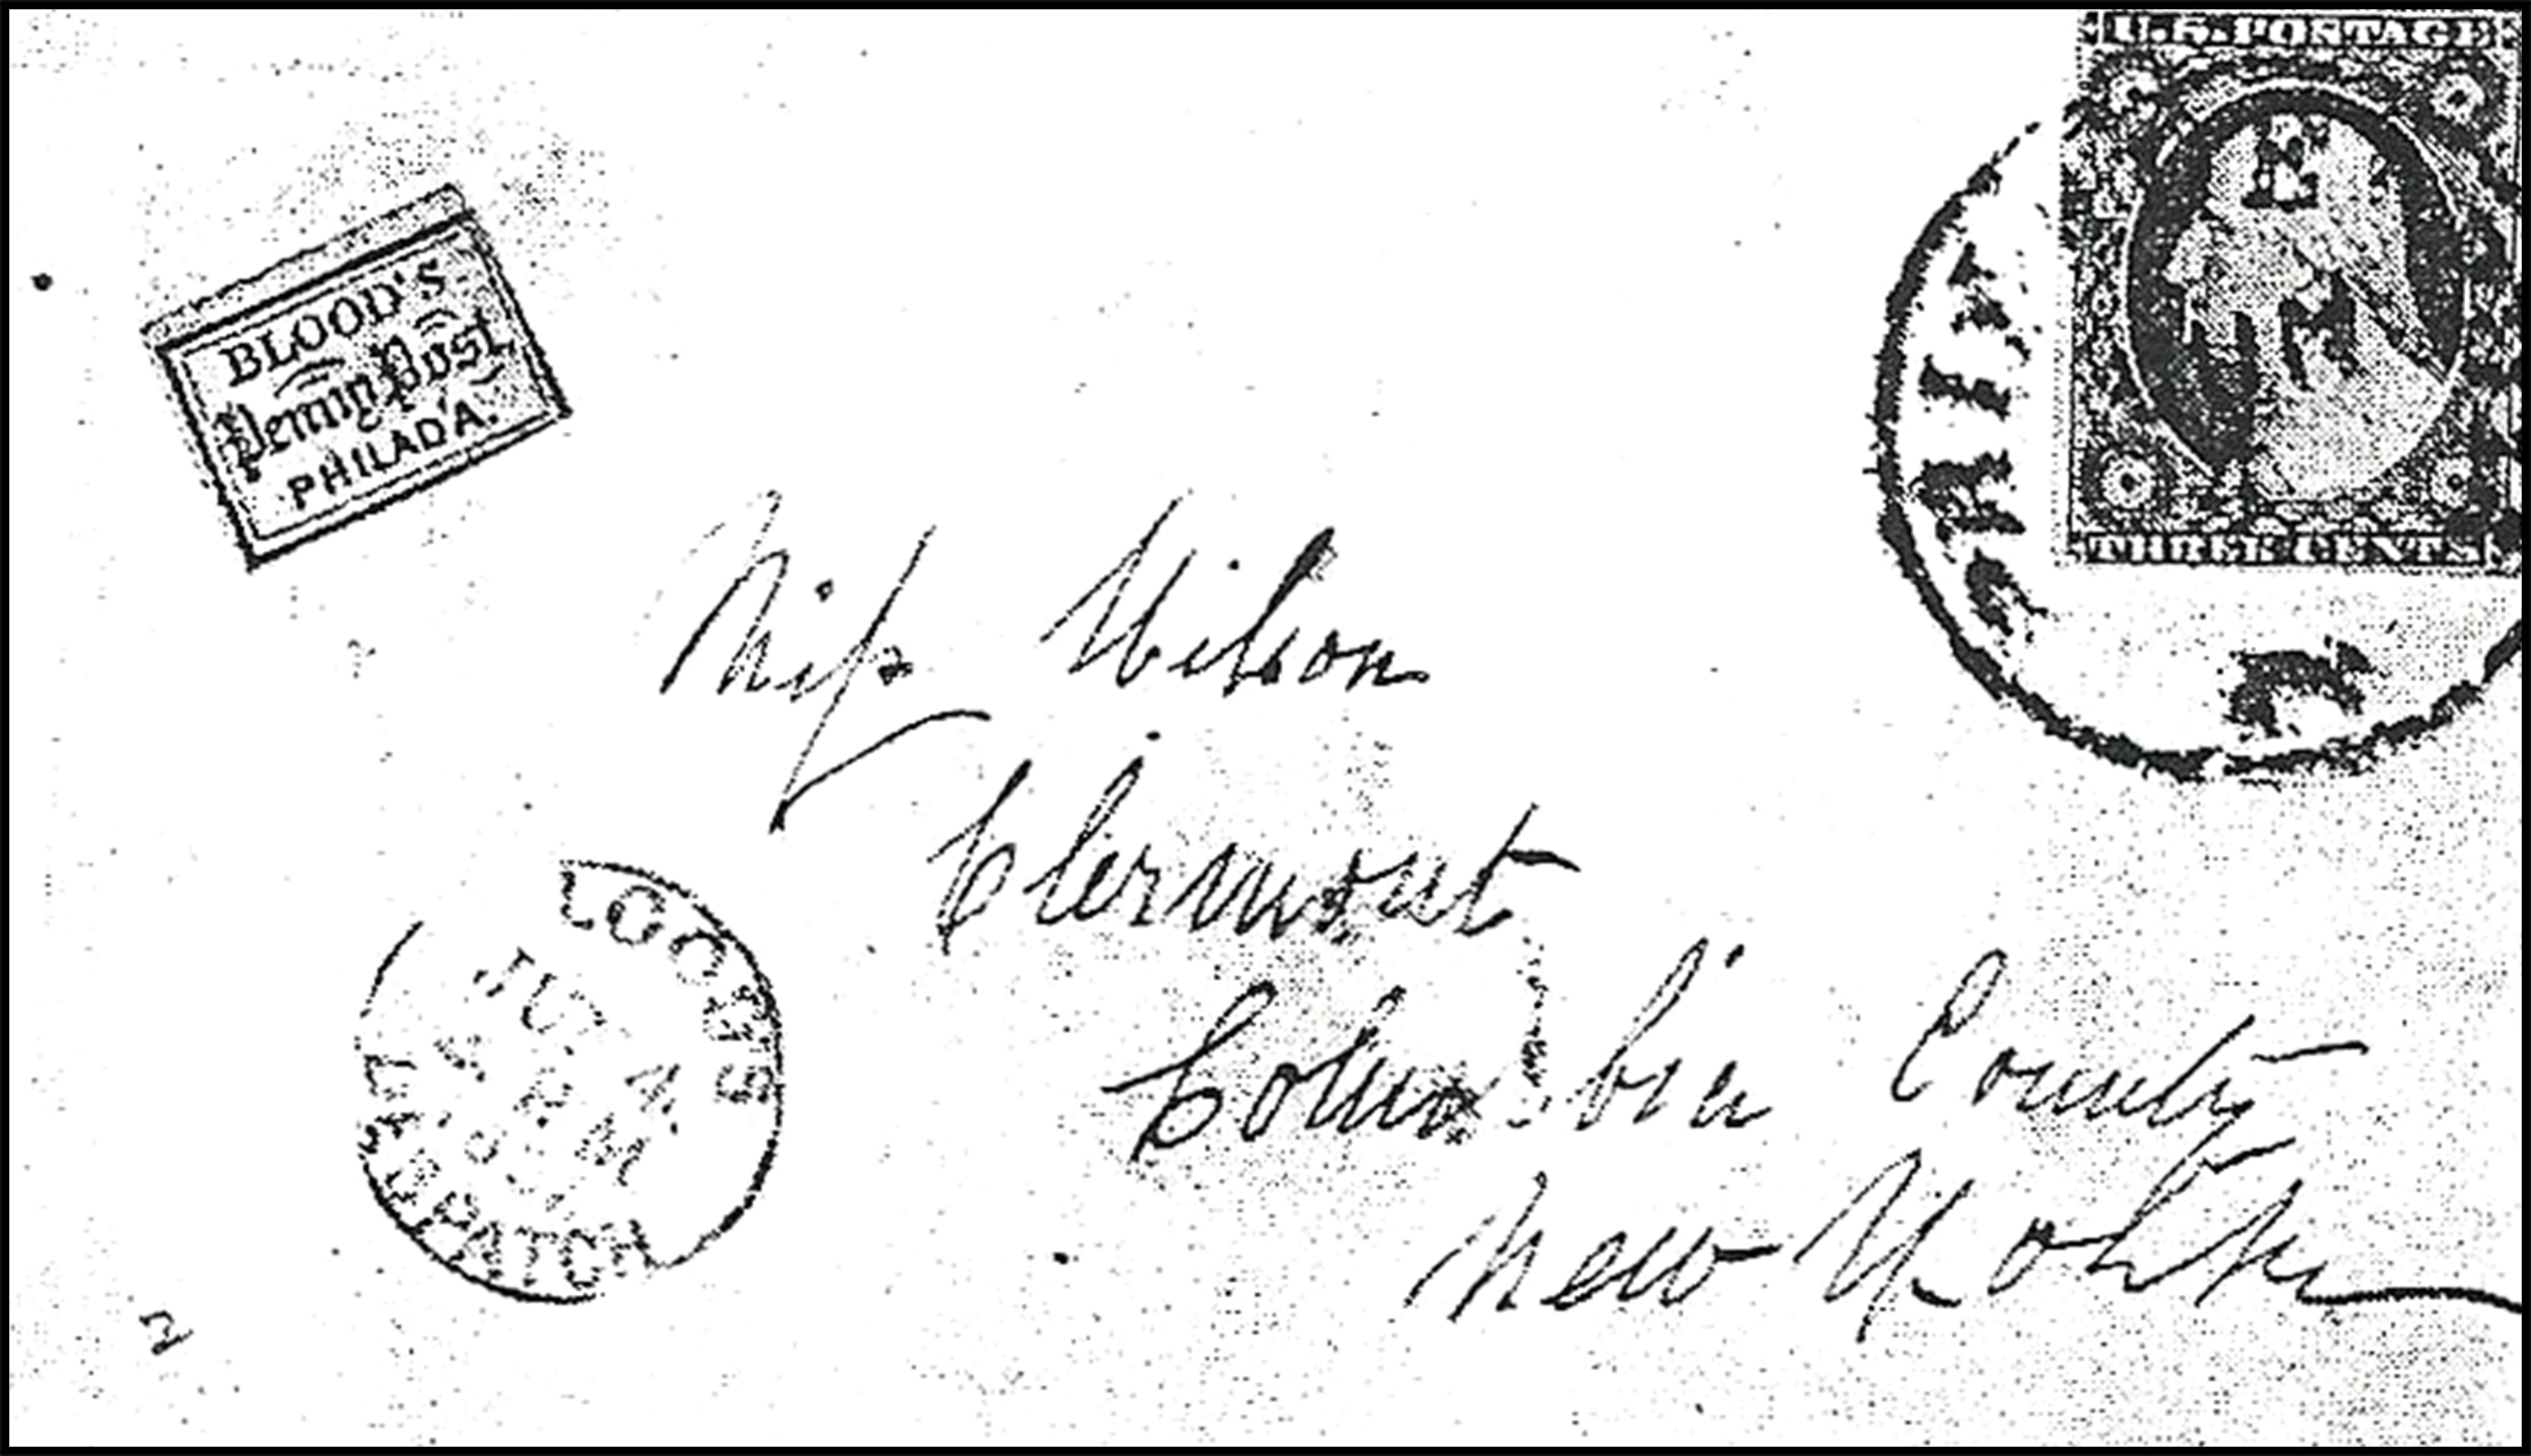 U.S. POSTAGE
THREE CENTS
BLOOD'S
Penny Post
PHILAD'A.
Miss Wilson
Clermont
Columbia County
New York
LOOD'S
DESPATCH